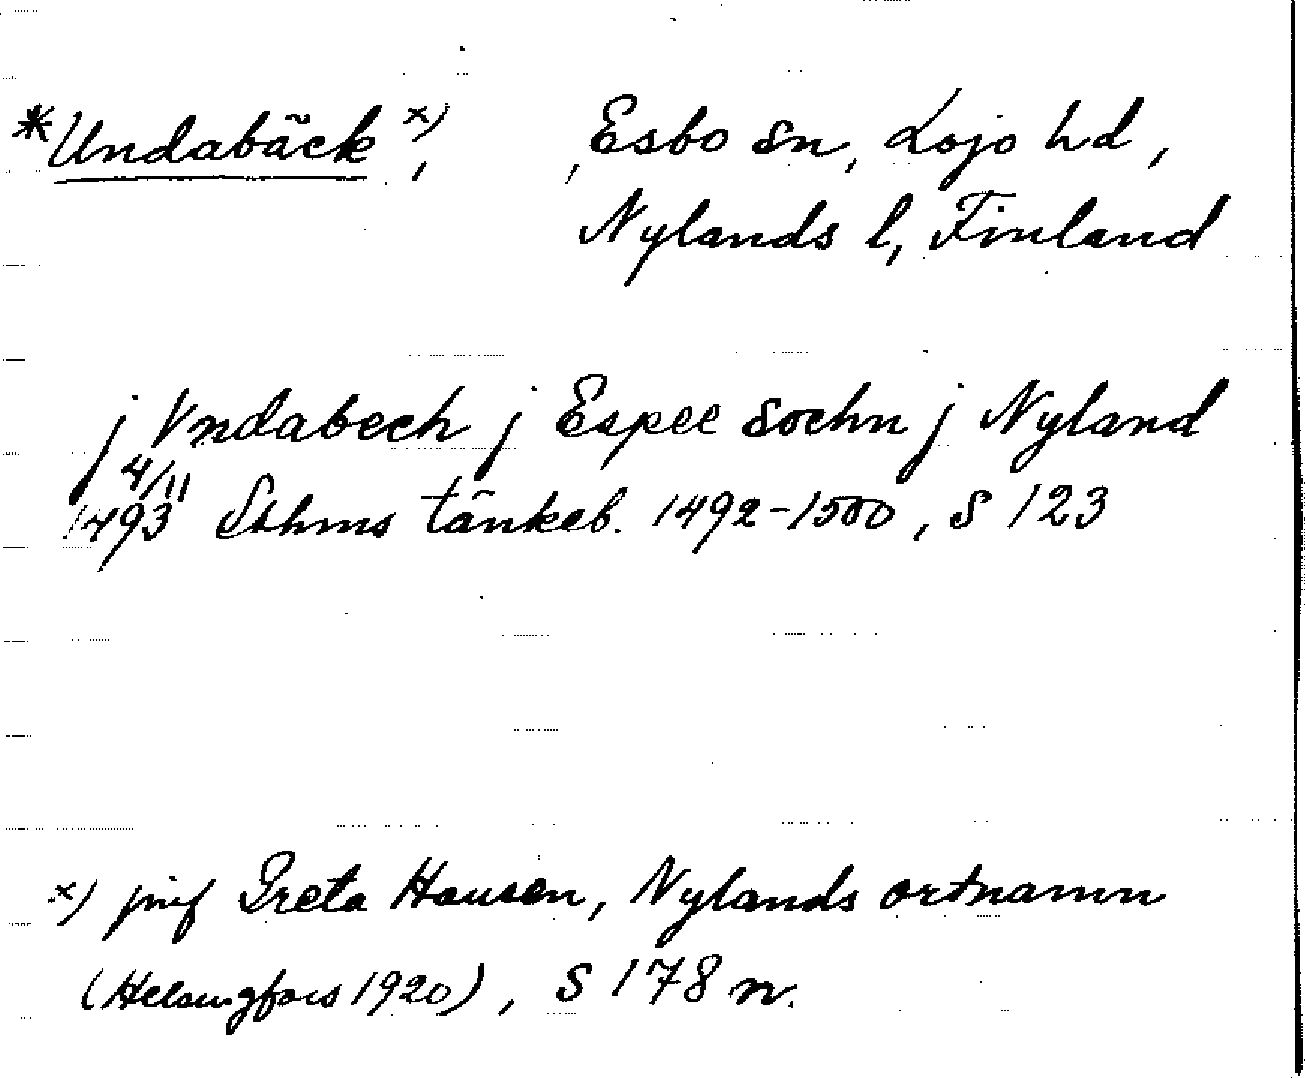 *Undabäck x), , Esbo sn, Lojo hd,
Nylands l, Finland
j Vndabech j Espee sochn j Nyland
4/11
1493 Sthms tänkeb. 1492-1500, S 123
x) jmf Greta Hausen, Nylands ortnamn
(Helsingfors 1920), S 178 n.